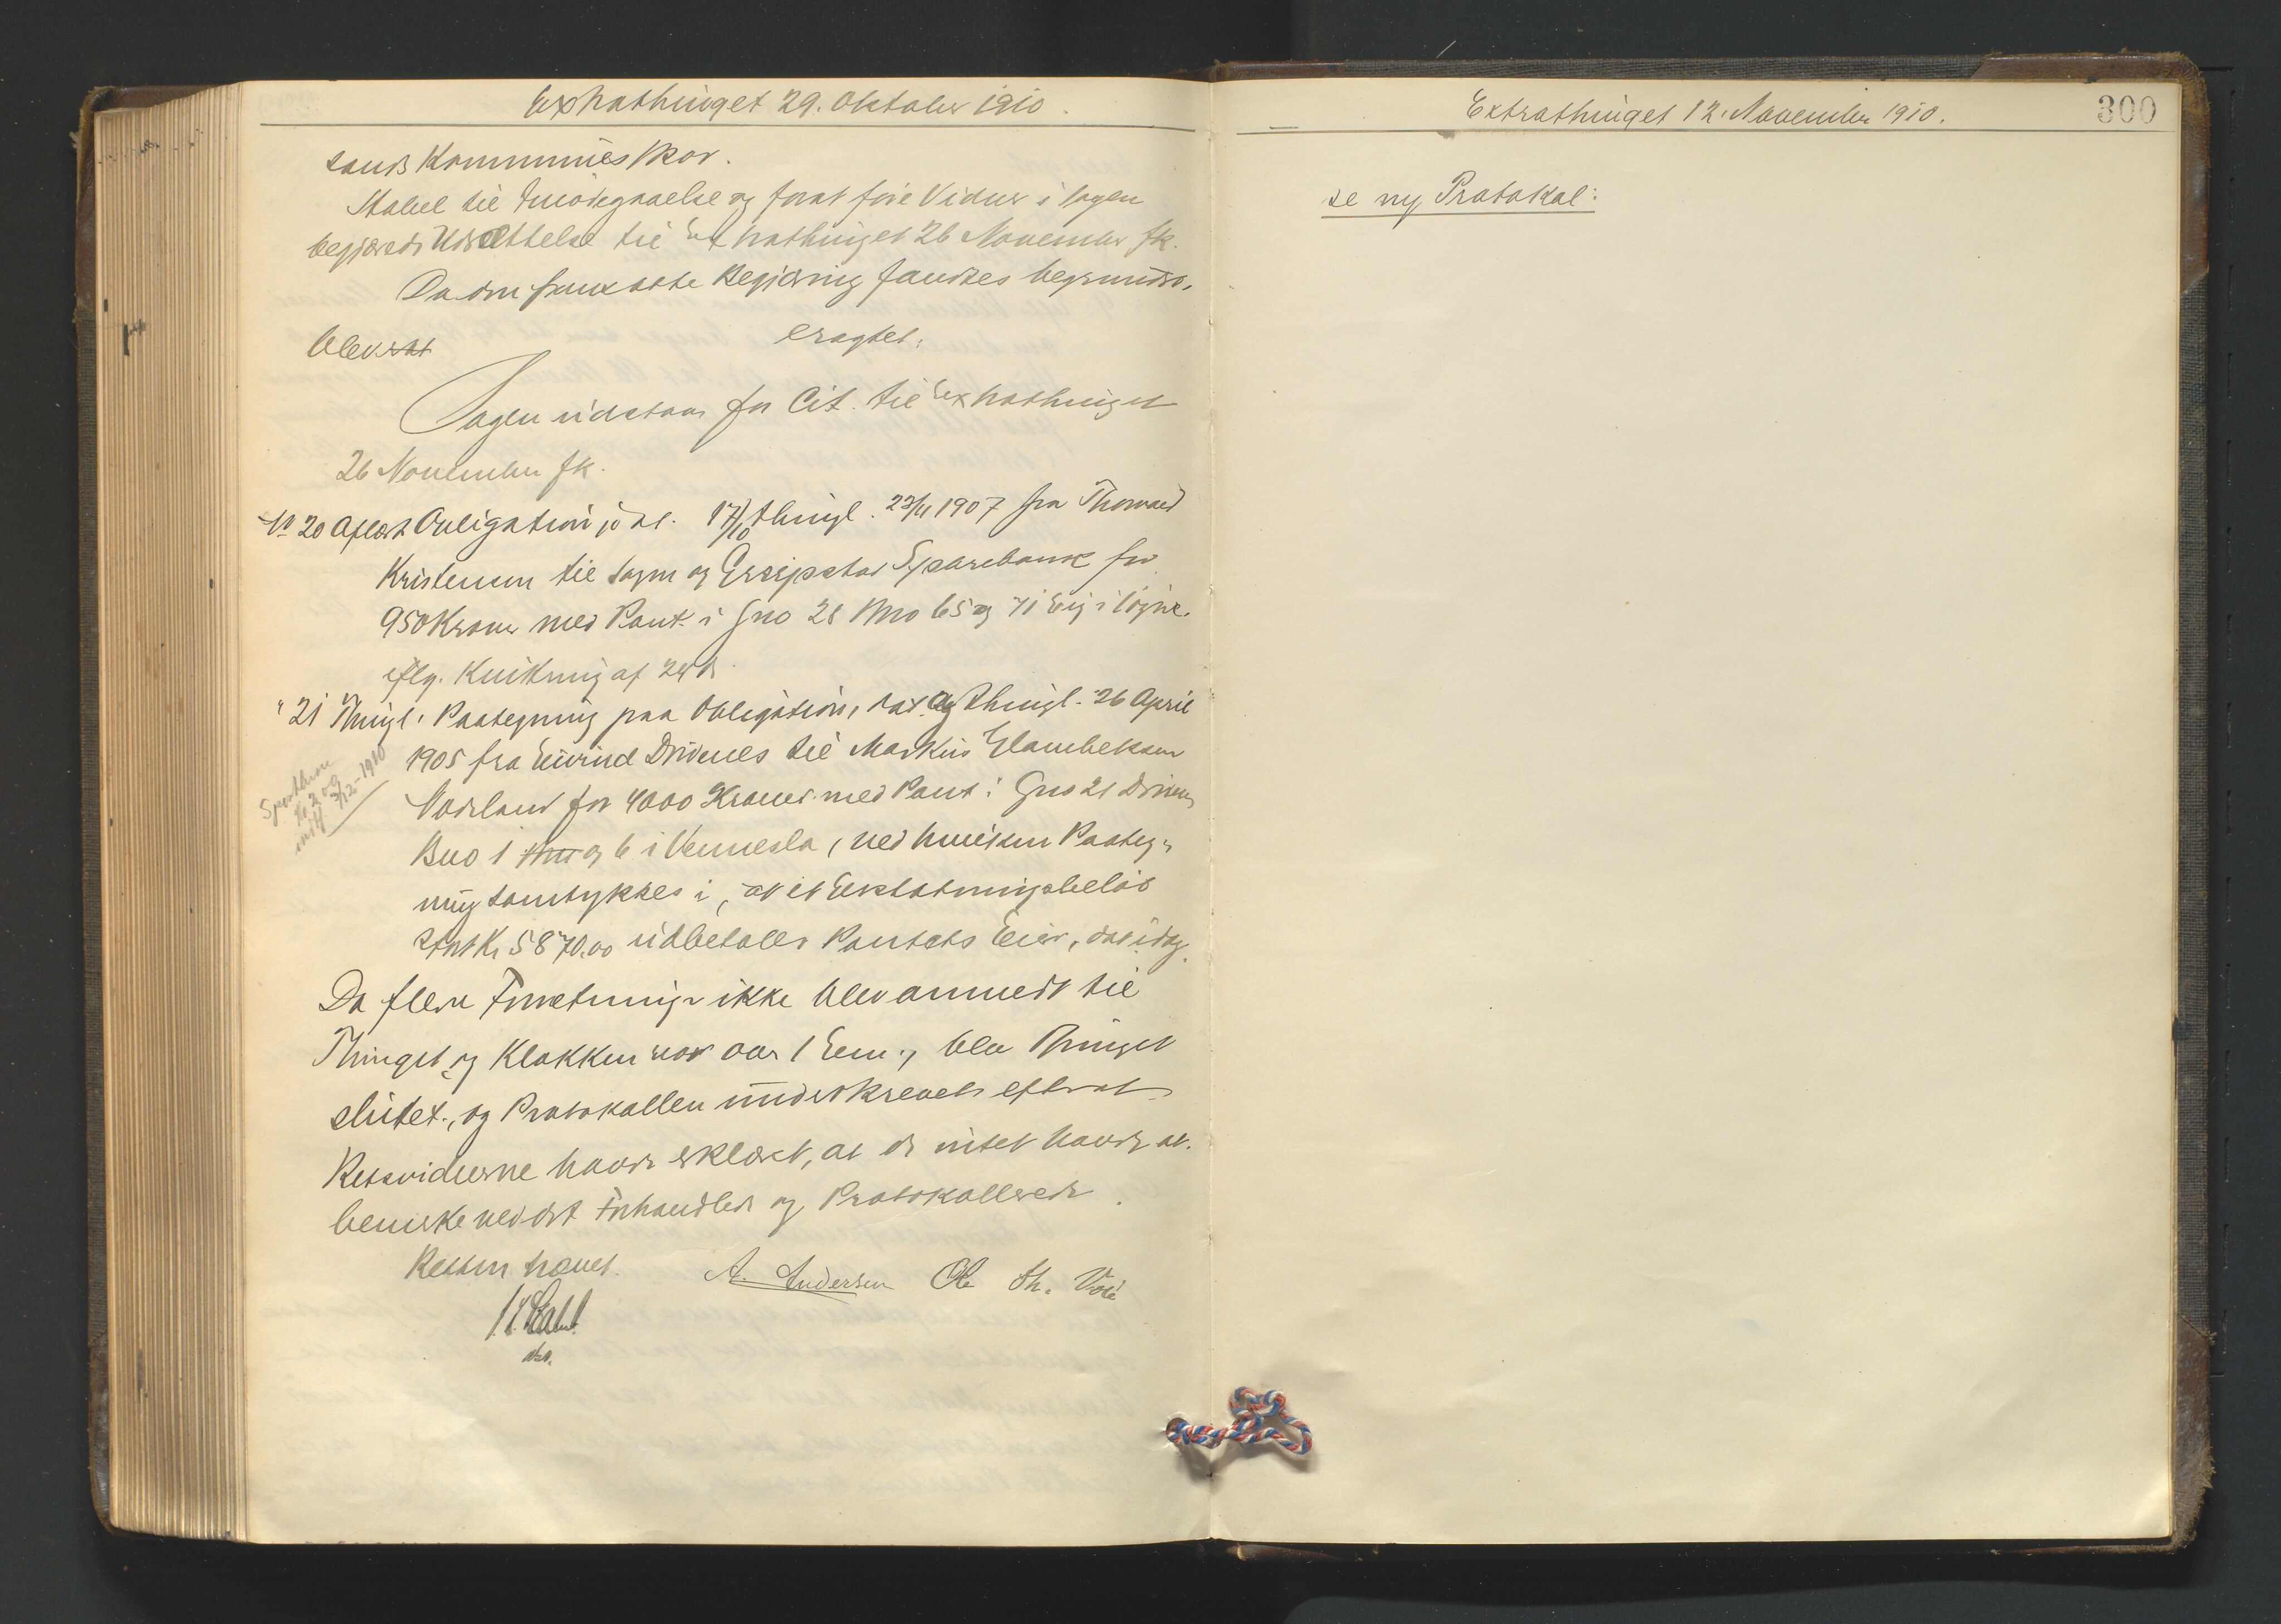 Extrathinget 29. Oktober 1910.
sands Kommuneskov.
Stabel til Imødegaaelse og forat føre Vidner i Sagen
begjærede Udsættelse til Extrathinget 26 November fk.
Da den fremsatte Begjæring fandtes begrundet,
blev eragtet:
Sagen udstaar for Cit. til Extrathinget
26 November fk.
No 20 Aflæst Obligation dat. 17/10 thingl. 23/11 1907 fra Thorvald
Kristensen til Søgne og Greipstad Sparebank for
950 Kroner med Pant i Gno 28 Bno 65 og 71 Eig i Søgne.
iflg. Kvittering af 24 ds.
" 21 Thingl. Paategning paa Obligation, dat. og thingl. 26 April
1905 fra Eivind Drivenes til Markus
for 4000 Kroner med Pant i Gno 21 Drivenes
Bno 1 og 6 i Vennesla, ved hvilken Paateg-
ning samtykkes i, at et Erstatningsbeløb
stort Kr 5870.00 udbetales Pantets Eier, dat. idag.
Da flere Forretninger ikke blev anmeldt til
Thinget, og Klokken var over 1 Em., blev Thinget
sluttet, og Protokollen underskrevet efterat
Retsvidnerne havde erklæret, at de intet havde at
bemerke ved det Forhandlede og Protokollerede.
Retten hævet.
A. Andersen Ole Th.
Extrathinget 12. November 1910.
300
se ny Protokol: